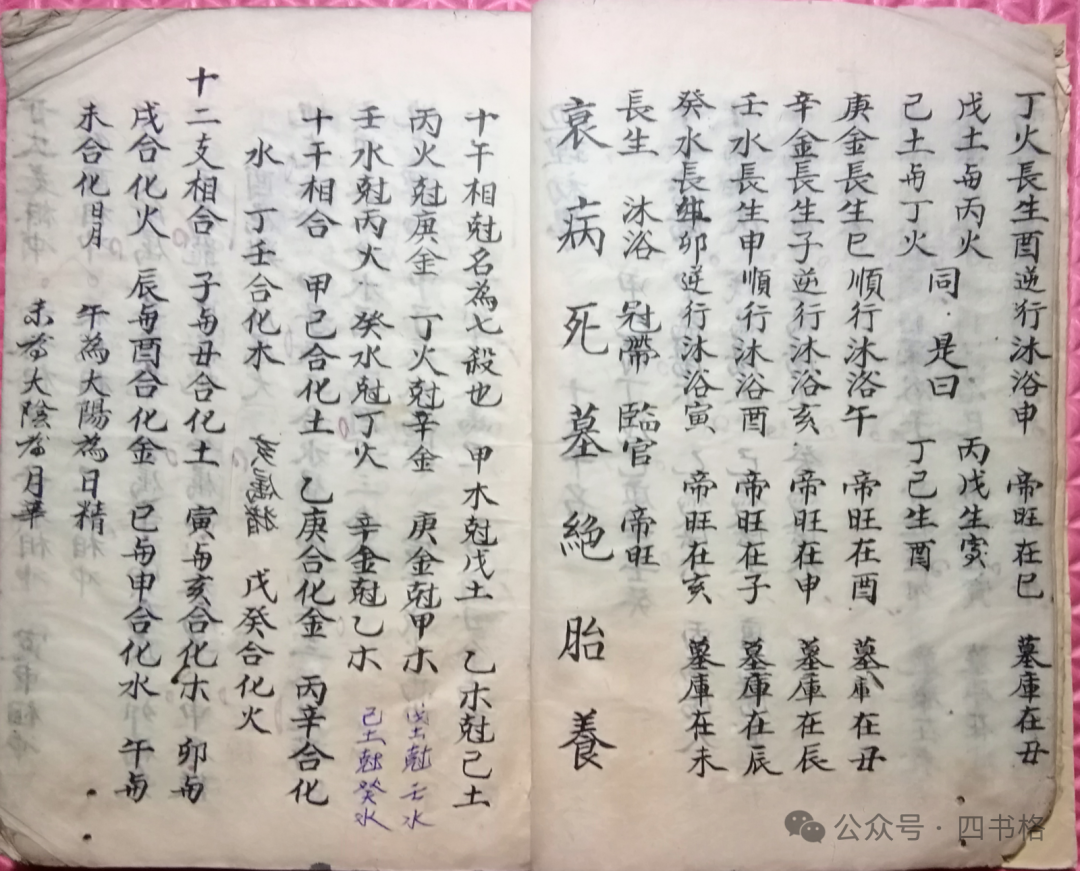 丁火長生酉逆行沐浴申　帝旺在巳　墓庫在丑
戊土与丙火　丙戊生寅
同是曰
己土与丁火　丁己生酉
庚金長生巳順行沐浴午　帝旺在酉　墓庫在丑
辛金長生子逆行沐浴亥　帝旺在申　墓庫在辰
壬水長生申順行沐浴酉　帝旺在子　墓庫在辰
癸水長生卯逆行沐浴寅　帝旺在亥　墓庫在未
長生　沐浴　冠帶　臨官　帝旺
衰病死墓絕胎養
十午相尅名為七殺也　甲木尅戊土　乙木尅己土
丙火尅庚金　丁火尅辛金　庚金尅甲木　戊土尅壬水
壬水尅丙火　癸水尅丁火　辛金尅乙木　己土尅癸水
十干相合　甲己合化土　乙庚合化金　丙辛合化
水　丁壬合化木　亥属猪　戊癸合化火
十二支相合　子与丑合化土　寅与亥合化木　卯与
戌合化火　辰与酉合化金　巳与申合化水　午与
未合化日月　午為大陽為日精
未為大陰為月華
公众号·四书格